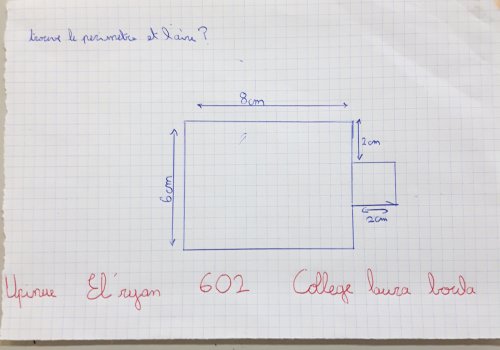 trouve le perimètre et l'aire ?
8cm
2cm
6cm
2cm
El'ryan 602 College laura